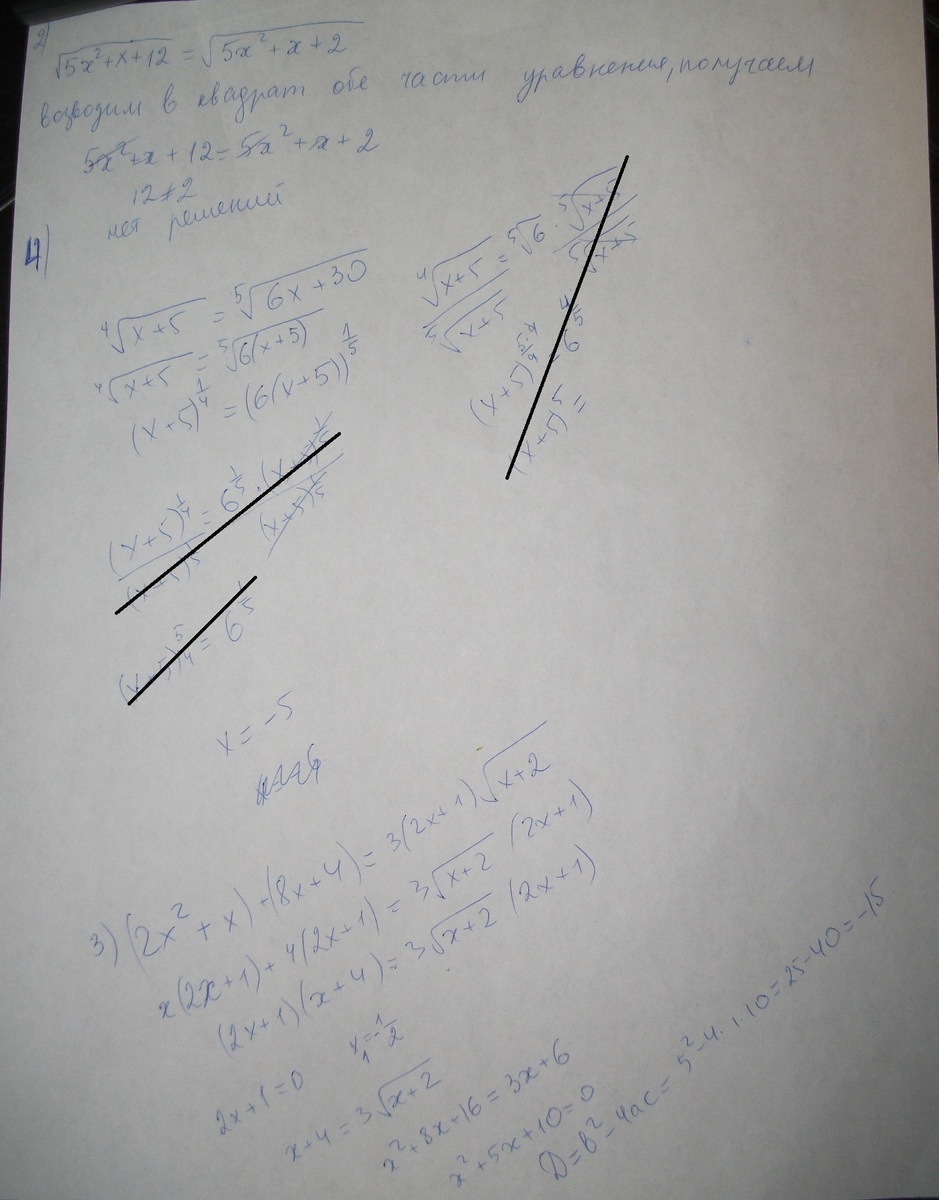 2)
√(5x²+x+12) = √(5x²+x+2)
возводим в квадрат обе части уравнения, получаем
5x²+x+12=5x²+x+2
12≠2
нет решений
4)
⁴√(x+5) = ⁵√(6x+30)
⁴√(x+5) = ⁵√(6(x+5))
(x+5)^(1/4) = (6(x+5))^(1/5)
x = -5
3) (2x²+x)+(8x+4)=3(2x+1)√(x+2)
x(2x+1)+4(2x+1)=3√(x+2) (2x+1)
(2x+1)(x+4)=3√(x+2) (2x+1)
2x+1=0 x₁=-1/2
x+4=3√(x+2)
x²+8x+16=3x+6
x²+5x+10=0
D=b²-4ac=5²-4·1·10=25-40=-15